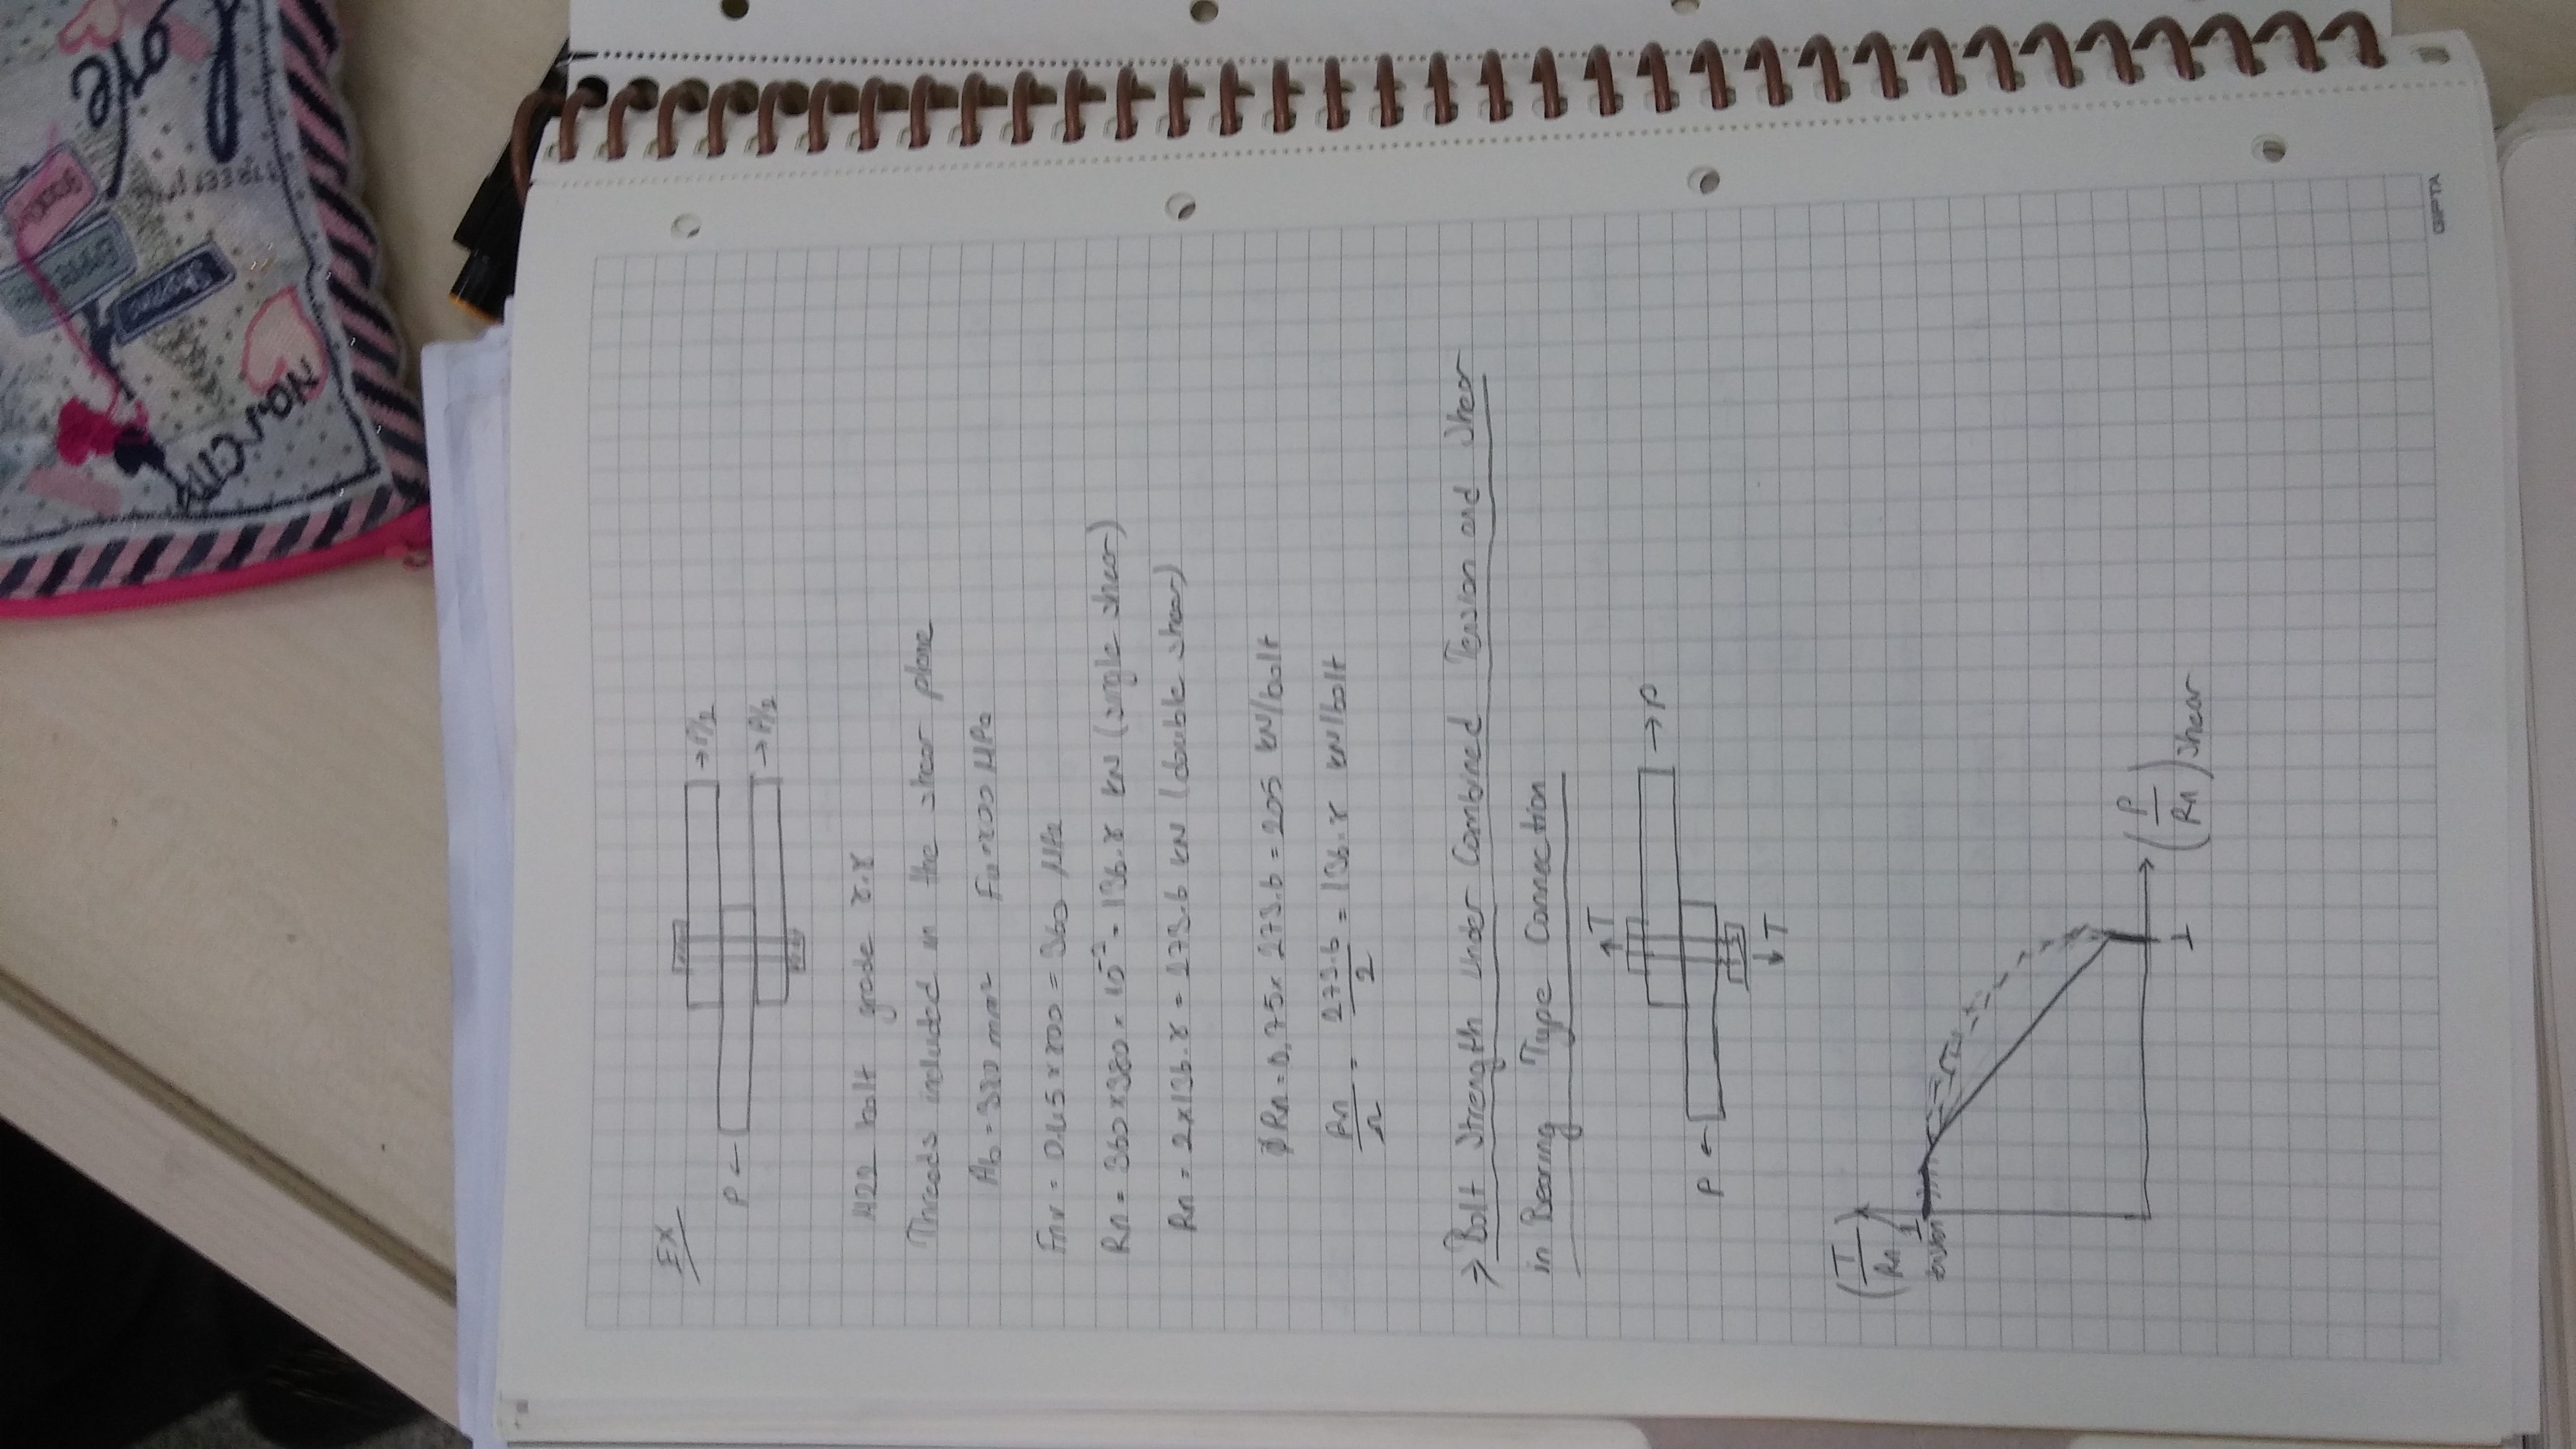 Love
Normcm
EX
→ P/2
P ←
→ P/2
M22 bolt grade 8.8
Threads included in the shear plane
Ab = 380 mm² Fu = 800 MPa
Fnv = 0.45 x 800 = 360 MPa
Rn = 360 x 380 x 10⁻³ = 136.8 kN (single shear)
Rn = 2 x 136.8 = 273.6 kN (double shear)
ϕ Rn = 0,75 x 273.6 = 205 kN/bolt
Rn/Ω = 273.6/2 = 136.8 kN/bolt
→ Bolt Strength Under Combined Tension and Shear
in Bearing Type Connection
↑ T
→ P
P ←
↓ T
(T/Rn)
1
tension
1
(P/Rn) shear
GIPTA